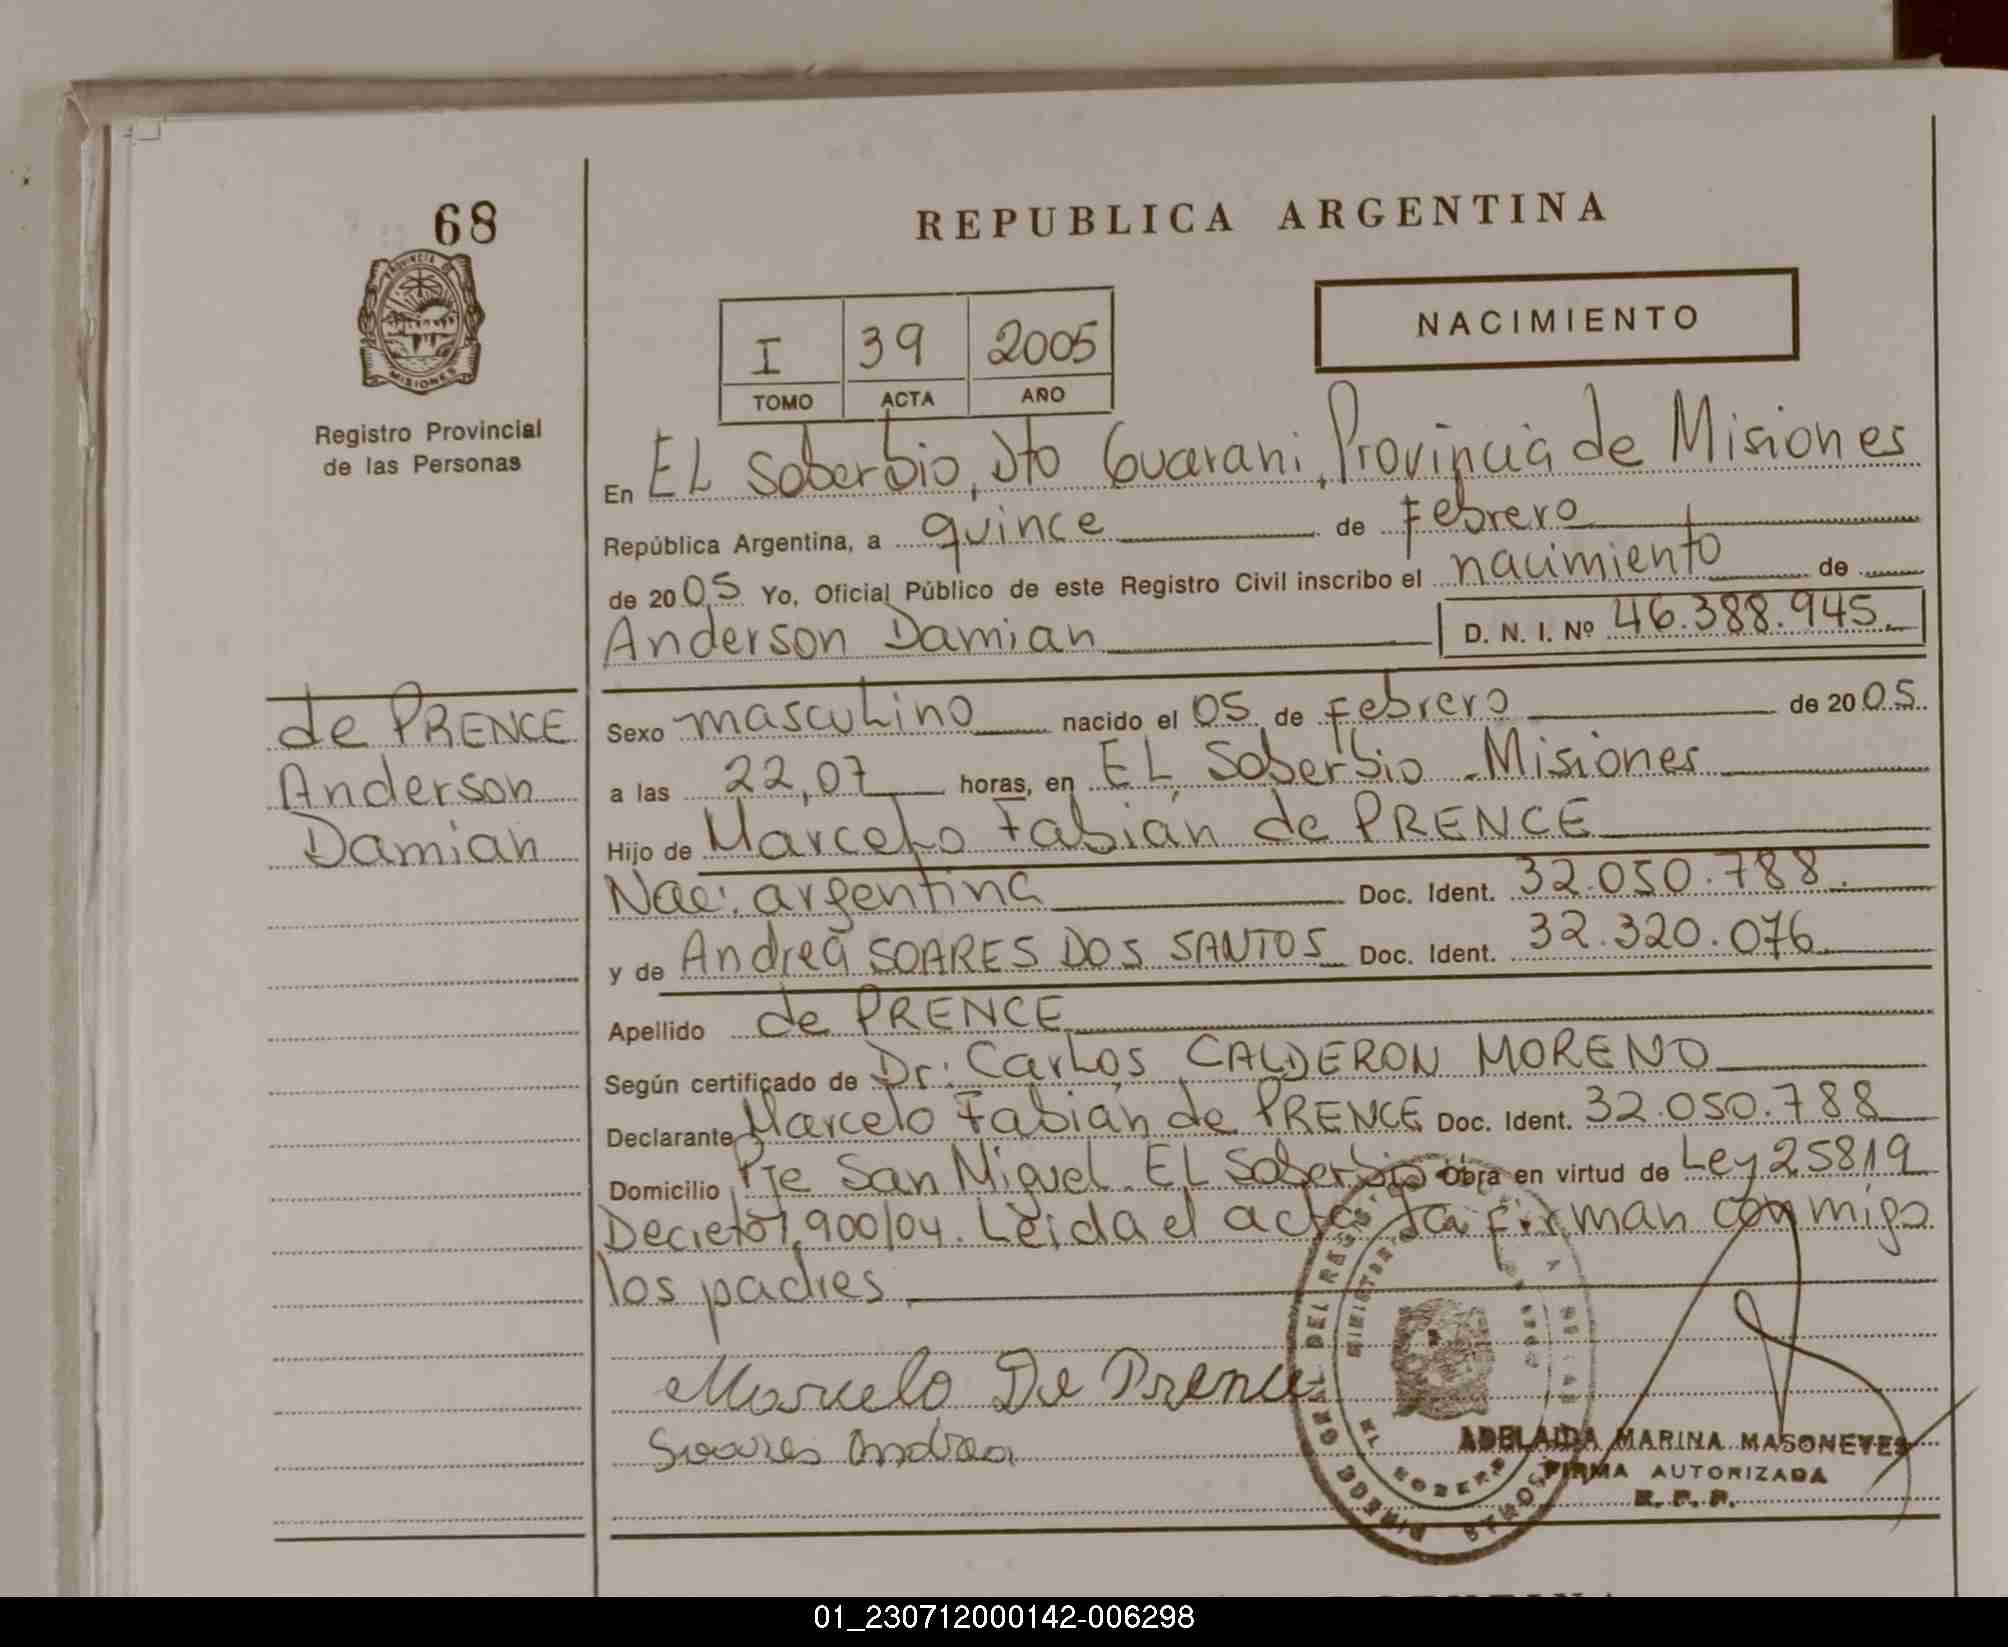 68
PROVINCIA DE
MISIONES
Registro Provincial
de las Personas
REPUBLICA ARGENTINA
NACIMIENTO
I 39 2005
TOMO ACTA AÑO
En EL Soberbio, Dto Guarani, Provincia de Misiones
República Argentina, a quince de Febrero
de 2005 Yo, Oficial Público de este Registro Civil inscribo el nacimiento de
Anderson Damian D. N. I. Nº 46.388.945.
de PRENCE
Anderson
Damian
Sexo masculino nacido el 05 de Febrero de 2005.
a las 22,07 horas, en EL Soberbio - Misiones
Hijo de Marcelo Fabián de PRENCE
Nac: argentina Doc. Ident. 32.050.788.
y de Andrea SOARES DOS SANTOS Doc. Ident. 32.320.076
Apellido de PRENCE
Según certificado de Dr: Carlos CALDERON MORENO
Declarante Marcelo Fabián de PRENCE Doc. Ident. 32.050.788
Domicilio Pje San Miguel - EL Soberbio Obra en virtud de Ley 25819
Decreto 1.900/04. Leida el acta la firman conmigo
los padres
Marcelo De Prence
Soares Andrea
DEL
ADELAIDA MARINA MASONEVES
FIRMA AUTORIZADA
R. P. P.
01_230712000142-006298